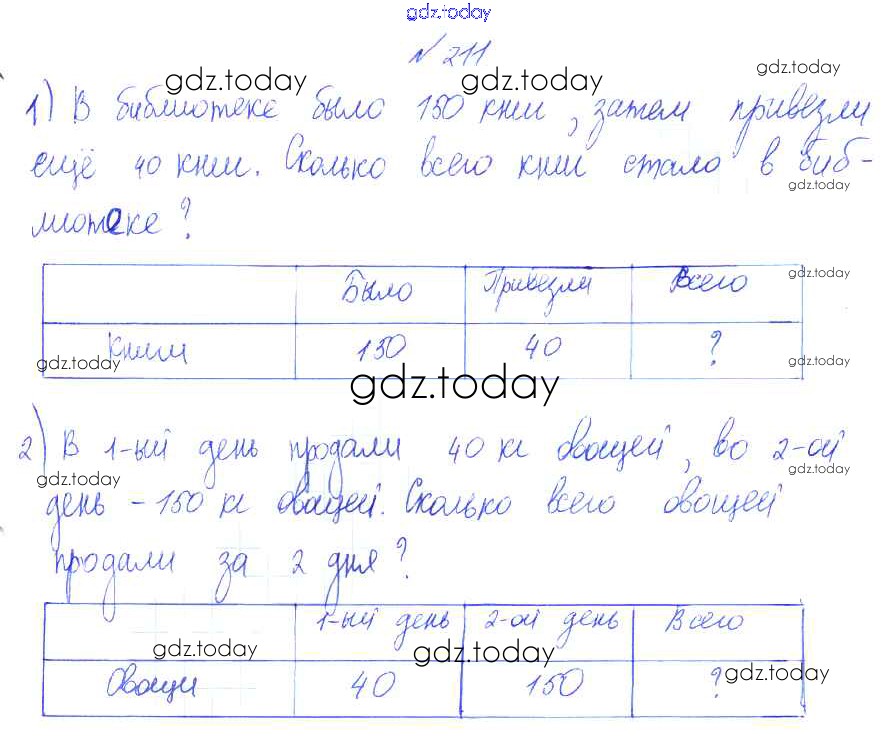 gdz.today
№ 211
gdz.today gdz.today gdz.today
1) В библиотеке было 150 книг, затем привезли
ещё 40 книг. Сколько всего книг стало в биб-
gdz.today
лиотеке?
Было Привезли Всего
gdz.today
книги 150 40 ?
gdz.today gdz.today gdz.today
2) В 1-ый день продали 40 кг овощей, во 2-ой
gdz.today gdz.today
день - 150 кг овощей. Сколько всего овощей
продали за 2 дня?
1-ый день 2-ой день Всего
gdz.today gdz.today
Овощи 40 150 ?
gdz.today